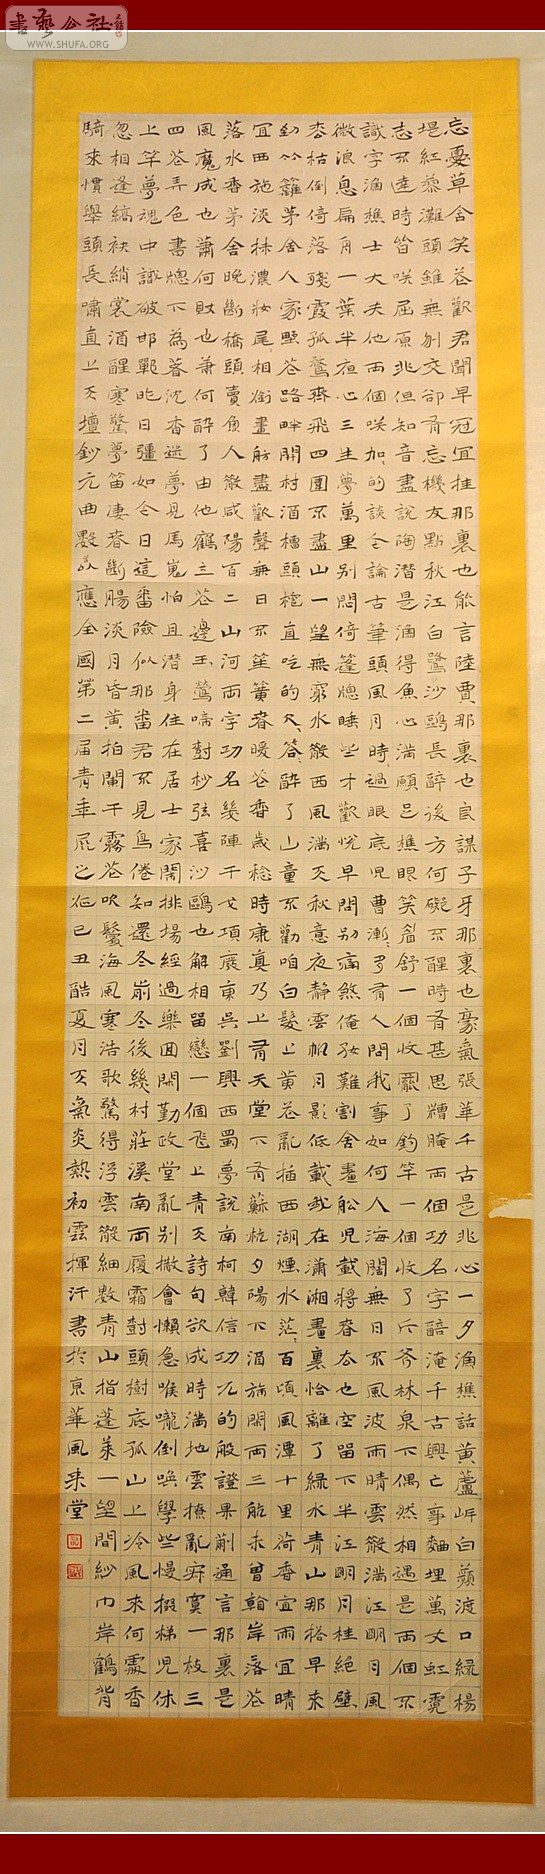 忘憂草含笑花勸君聞早冠宜挂那裏也能言陸賈那裏也良謀子牙那裏也豪氣張華千古是非心一夕漁樵話黃蘆岸白蘋渡口綠楊
堤紅蓼灘頭雖無刎交卻有忘機友點秋江白鷺沙鷗長醉後方何礙不醒時有甚思糟腌兩個功名字醅淹千古興亡事麯埋萬丈虹霓
志不達時皆笑屈原非但知音盡說陶潛是漁得魚心滿願足樵眼笑眉舒一個收罷了釣竿一個收了斤斧林泉下偶然相遇是兩個不
識字漁樵士大夫他兩個笑加加的談今論古筆頭風月時過眼底兒曹漸漸多有人問我事如何人海闊無日不風波雨晴雲散滿江明月風
微浪息扁舟一葉半夜心三生夢萬里別悶倚篷窗睡些才歡悅早間別痛煞俺好難割舍畫船兒載將春去也空留下半江明月掛絕壁
松枯倒倚落殘霞孤鶩齊飛四圍不盡山一望無窮水散西風滿天秋意夜靜雲帆月影低載我在瀟湘畫裏恰離了綠水青山那搭早來
到竹籬茅舍人家野花路畔開村酒槽頭榨直吃的欠欠答答醉了山童不勸咱白髮上黃花亂插西湖煙水茫茫百頃風潭十里荷香宜雨宜晴
宜西施淡抹濃妝尾尾相銜畫舫盡歡聲無日不笙簧春暖花香歲稔時康真乃上有天堂下有蘇杭夕陽下酒旆閑兩三航未曾着岸落花
落水香茅舍晚斷橋頭賣魚人散咸陽百二山河兩字功名幾陣干戈項廢東吳劉興西蜀夢說南柯韓信功兀的般證果蒯通言那裏是
風魔成也蕭何敗也蕭何醉了由他鶴立花邊玉鶯啼樹杪弦喜沙鷗也解相留戀一個飛上青天詩句欲成時滿地雲撩亂寂寞一枝三
四花弄色書窗下為着沈香迷夢見馬嵬怕且潛身住在居士家鬧排場經過樂回閑勤政堂亂別撒會懶急喉嚨倒喚學些慢掇梯兒休
上竿夢魂中識破邯鄲昨日彊如今日這番險似那番君不見鳥倦知還冬前冬後幾村莊溪南兩履霜對頭樹底孤山上冷風來何處香
忽相逢縞袂綃裳酒醒寒驚夢笛淒春斷腸淡月昏黃拍闌干霧花吹鬢海風寒浩歌驚得浮雲散細數青山指蓬萊一望間紗巾岸鶴背
騎來慣舉頭長嘯直上天壇鈔元曲數以應全國第二屆青年展之征己丑酷夏月天氣炎熱初雲揮汗書於京華風來堂
書藝公社
WWW.SHUFA.ORG